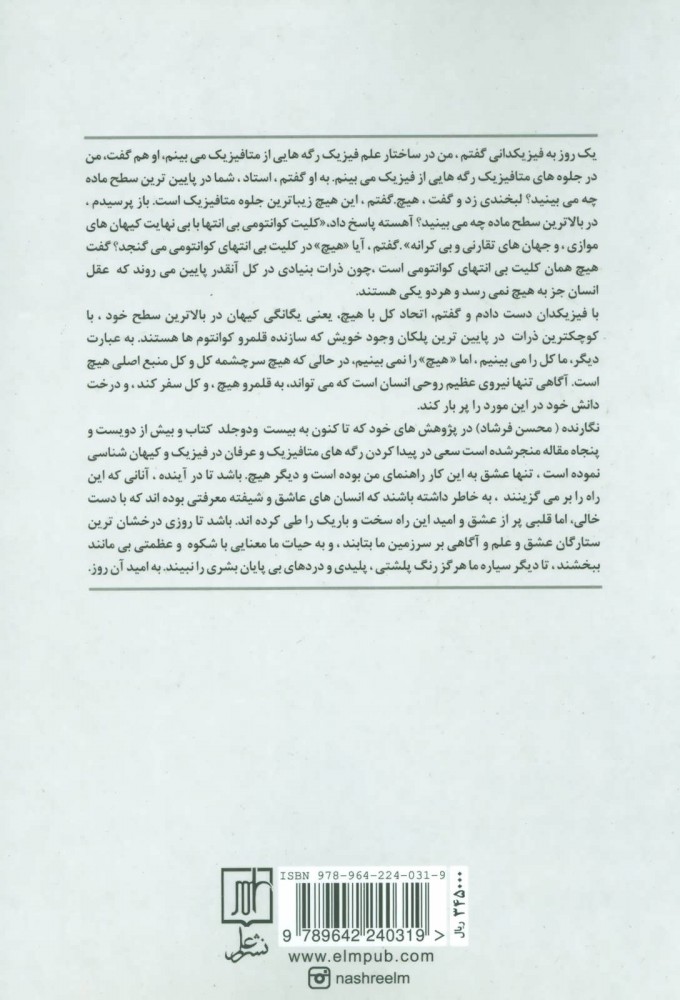 یک روز به فیزیکدانی گفتم ، من در ساختار علم فیزیک رگه هایی از متافیزیک می بینم، او هم گفت، من
در جلوه های متافیزیک رگه هایی از فیزیک می بینم. به او گفتم ، استاد ، شما در پایین ترین سطح ماده
چه می بینید؟ لبخندی زد و گفت ، هیچ.گفتم ، این هیچ زیباترین جلوه متافیزیک است. باز پرسیدم ،
در بالاترین سطح ماده چه می بینید؟ آهسته پاسخ داد،«کلیت کوانتومی بی انتها با بی نهایت کیهان های
موازی ، و جهان های تقارنی و بی کرانه».گفتم ، آیا «هیچ» در کلیت بی انتهای کوانتومی می گنجد؟ گفت
هیچ همان کلیت بی انتهای کوانتومی است ،چون ذرات بنیادی در کل آنقدر پایین می روند که عقل
انسان جز به هیچ نمی رسد و هردو یکی هستند.
با فیزیکدان دست دادم و گفتم، اتحاد کل با هیچ، یعنی یگانگی کیهان در بالاترین سطح خود ، با
کوچکترین ذرات در پایین ترین پلکان وجود خویش که سازنده قلمرو کوانتوم ها هستند. به عبارت
دیگر، ما کل را می بینیم ، اما «هیچ» را نمی بینیم، در حالی که هیچ سرچشمه کل و کل منبع اصلی هیچ
است. آگاهی تنها نیروی عظیم روحی انسان است که می تواند، به قلمرو هیچ ، و کل سفر کند ، و درخت
دانش خود در این مورد را پر بار کند.
نگارنده ( محسن فرشاد) در پژوهش های خود که تا کنون به بیست ودوجلد کتاب و بیش از دویست و
پنجاه مقاله منجرشده است سعی در پیدا کردن رگه های متافیزیک و عرفان در فیزیک و کیهان شناسی
نموده است ، تنها عشق به این کار راهنمای من بوده است و دیگر هیچ. باشد تا در آینده ، آنانی که این
راه را بر می گزینند ، به خاطر داشته باشند که انسان های عاشق و شیفته معرفتی بوده اند که با دست
خالی، اما قلبی پر از عشق و امید این راه سخت و باریک را طی کرده اند. باشد تا روزی درخشان ترین
ستارگان عشق و علم و آگاهی بر سرزمین ما بتابند ، و به حیات ما معنایی با شکوه و عظمتی بی مانند
ببخشند ، تا دیگر سیاره ما هرگز رنگ پلشتی ، پلیدی و دردهای بی پایان بشری را نبیند. به امید آن روز.
ISBN 978-964-224-031-9
9 789642 240319 >
۳۴۵۰۰۰ ریال
نشر علم
www.elmpub.com
nashreelm